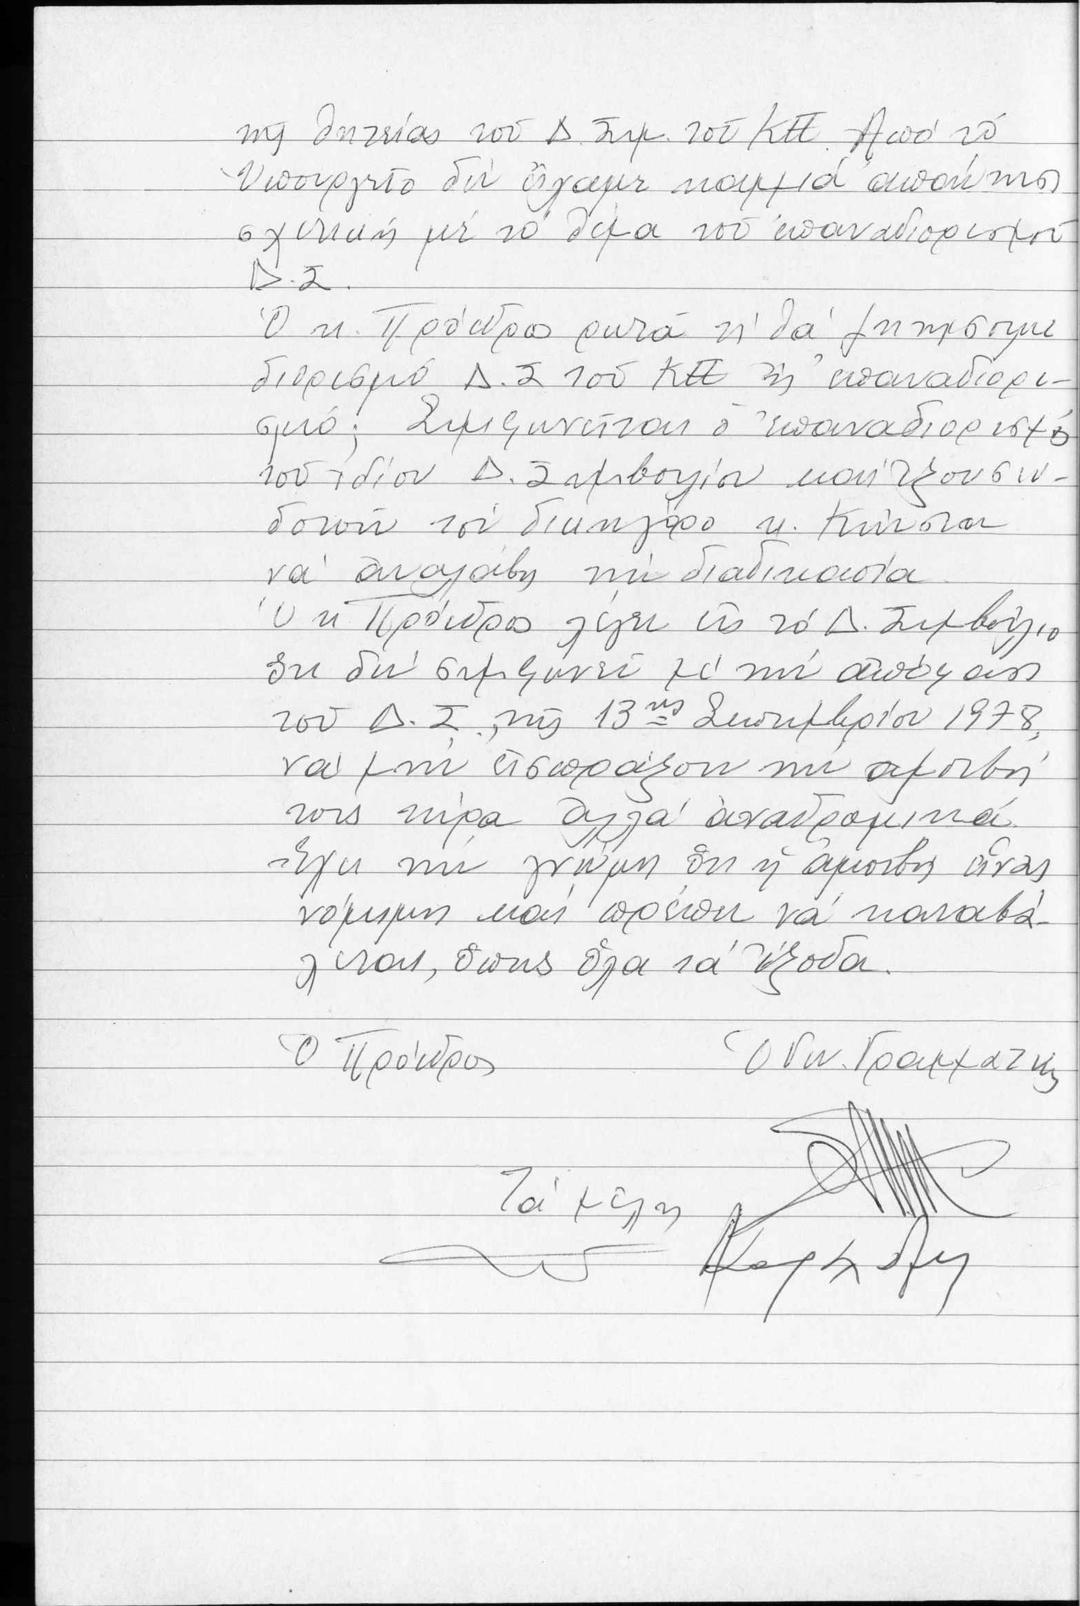 τῆς θητείας τοῦ Δ. Συμ. τοῦ ΚΠ. Ἀπό τό
Ὑπουργεῖο δέν εἴχαμε καμμιά ἀπάντηση
σχετική μέ τό θέμα τοῦ ἐπαναδιορισμοῦ
Δ.Σ.
Ὁ κ. Πρόεδρος ρωτᾶ τί θά ζητήσουμε
διορισμό Δ.Σ τοῦ ΚΠ ἤ ἐπαναδιορι-
σμό; Συμφωνεῖται ὁ ἐπαναδιορισμός
τοῦ ἰδίου Δ. Συμβουλίου καί ἐξουσιο-
δοτοῦν τόν δικηγόρο κ.
νά ἀναλάβη τήν διαδικασία.
Ὁ κ Πρόεδρος λέγει εἰς τό Δ. Συμβούλιο
ὅτι δέν συμφωνεῖ μέ τήν ἀπόφαση
τοῦ Δ.Σ., τῆς 13ης Σεπτεμβρίου 1978,
νά μήν εἰσπράξουν τήν ἀμοιβή
τους τώρα ἀλλά ἀναδρομικά.
Ἔχει τήν γνώμη ὅτι ἡ ἀμοιβή εἶναι
νόμιμη καί πρέπει νά καταβά-
λεται, ὅπως ὅλα τά ἔξοδα.
Ὁ Πρόεδρος Ὁ Γεν. Γραμματεύς
Τά μέλη